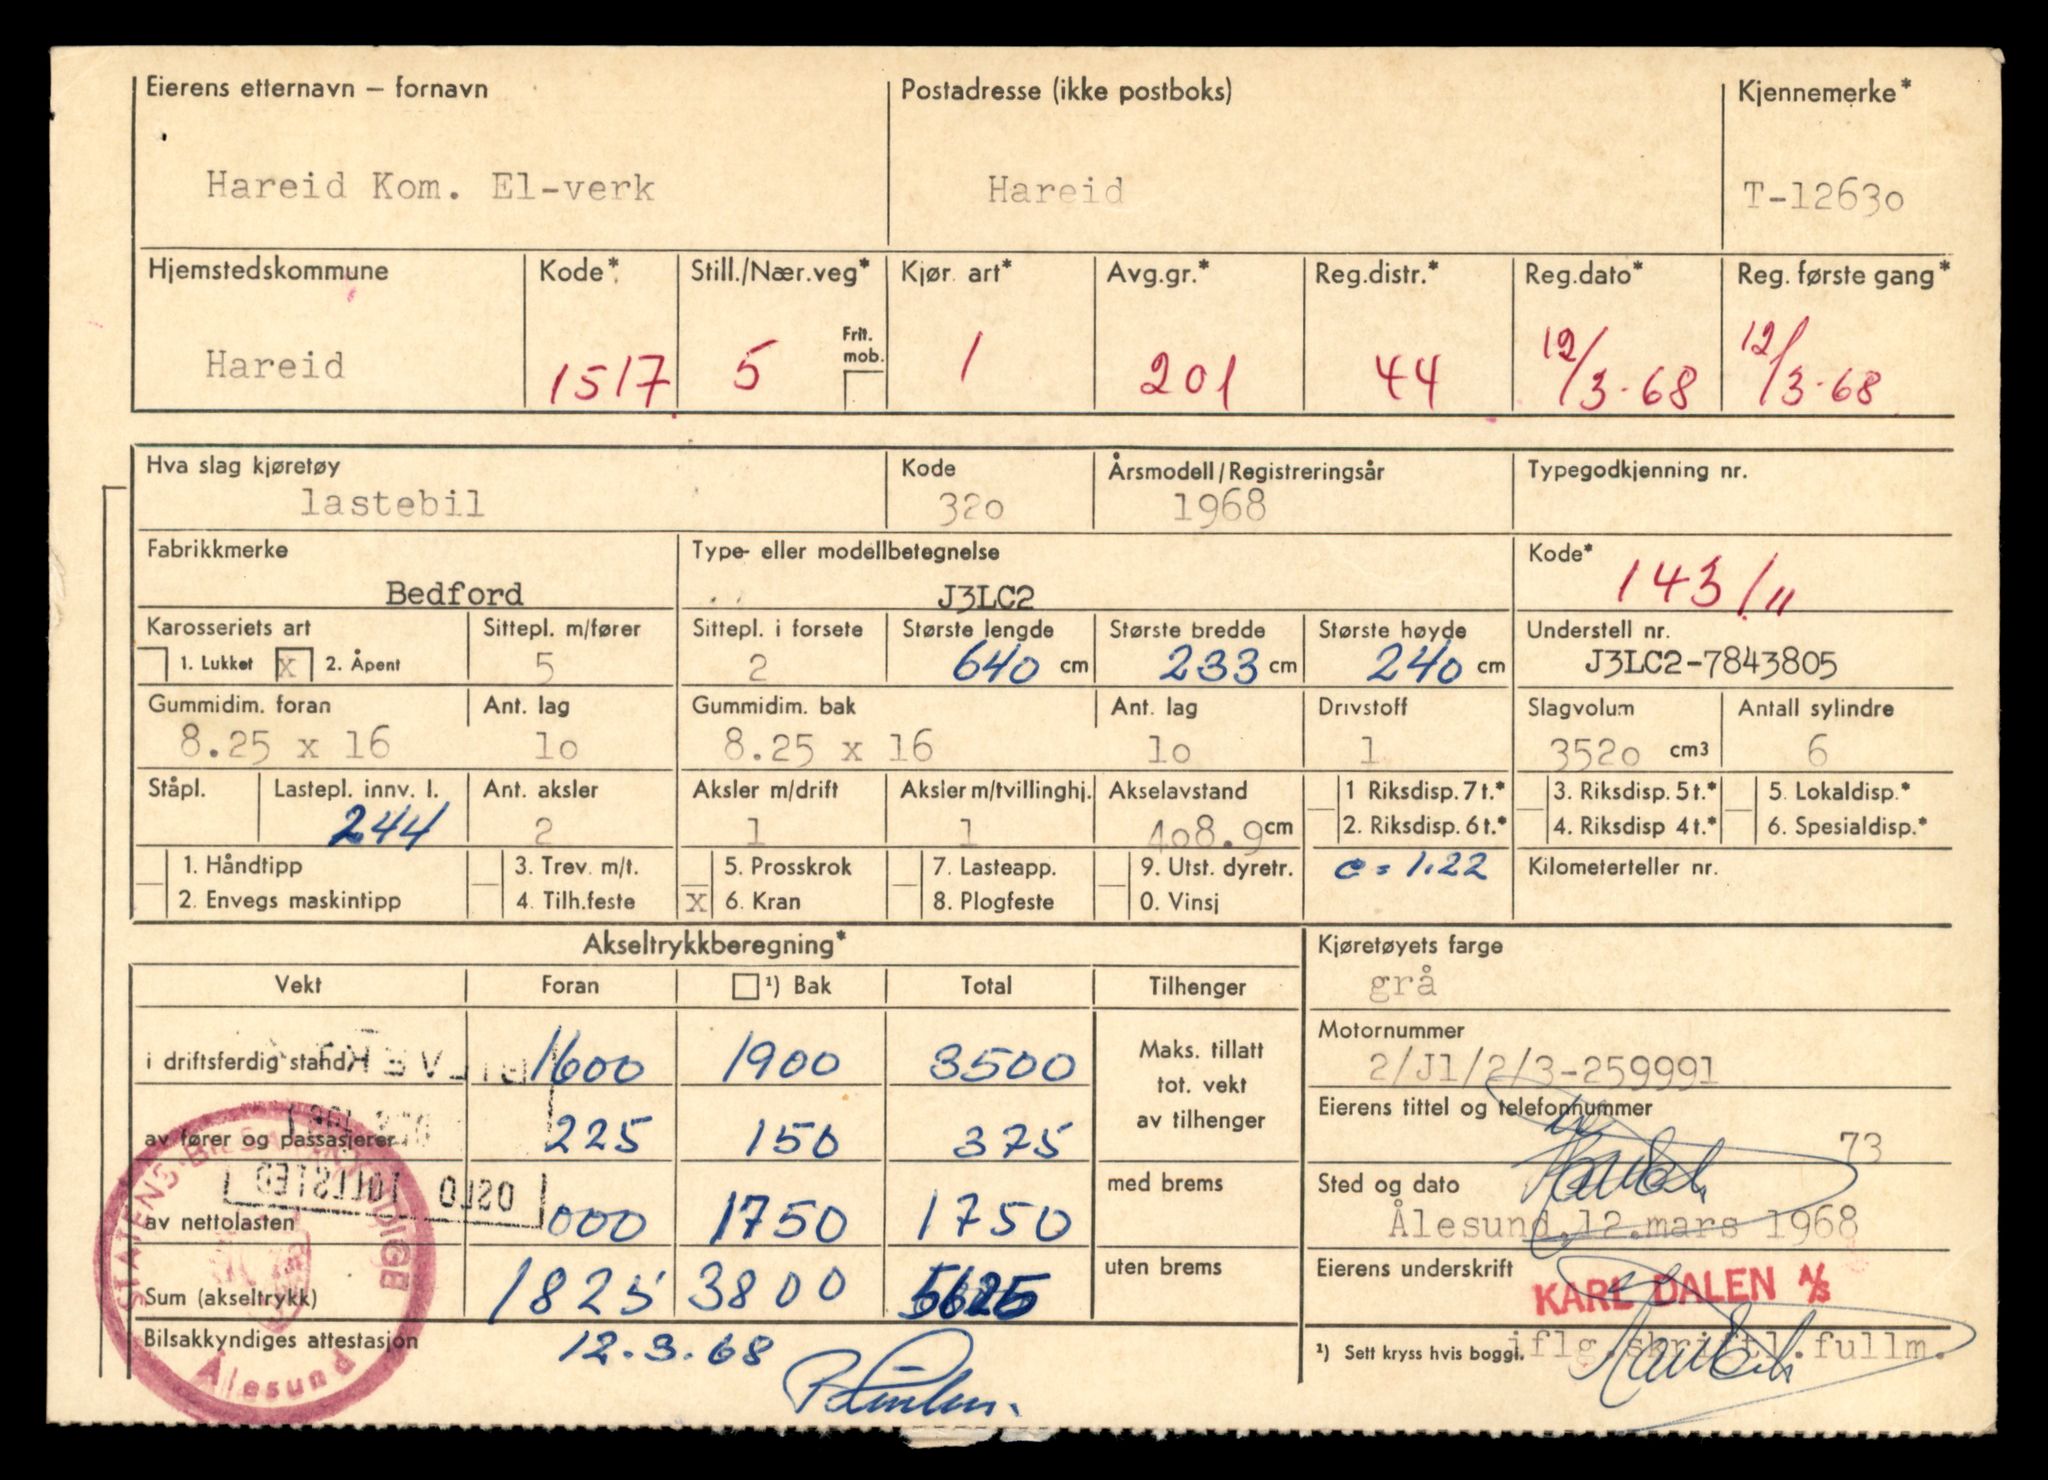 Eierens etternavn – fornavn
Postadresse (ikke postboks)
Kjennemerke*
Hareid Kom. El-verk
Hareid
T-12630
Hjemstedskommune
Kode*
Still./Nær.veg*
Kjør. art*
Avg.gr.*
Reg.distr.*
Reg.dato*
Reg. første gang*
Frit. mob.
Hareid
1517
5
1
201
44
12/3-68
12/3-68
Hva slag kjøretøy
Kode
Årsmodell/Registreringsår
Typegodkjenning nr.
lastebil
320
1968
Fabrikkmerke
Type- eller modellbetegnelse
Kode*
Bedford
J3LC2
143/11
Karosseriets art
Sittepl. m/fører
Sittepl. i forsete
Største lengde
Største bredde
Største høyde
Understell nr.
1. Lukket
x
2. Åpent
5
2
640 cm
233 cm
240 cm
J3LC2-7843805
Gummidim. foran
Ant. lag
Gummidim. bak
Ant. lag
Drivstoff
Slagvolum
Antall sylindre
8.25 x 16
10
8.25 x 16
10
1
3520 cm3
6
Ståpl.
Lastepl. innv. l.
Ant. aksler
Aksler m/drift
Aksler m/tvillinghj.
Akselavstand
1 Riksdisp. 7 t.*
3. Riksdisp. 5 t.*
5. Lokaldisp.*
244
2
1
1
408.9 cm
2. Riksdisp. 6 t.*
4. Riksdisp 4 t.*
6. Spesialdisp.*
1. Håndtipp
3. Trev. m/t.
5. Prosskrok
7. Lasteapp.
9. Utst. dyretr.
c = 1.22
Kilometerteller nr.
2. Envegs maskintipp
4. Tilh.feste
x
6. Kran
8. Plogfeste
0. Vinsj
Akseltrykkberegning*
Kjøretøyets farge
Vekt
Foran
¹) Bak
Total
Tilhenger
grå
i driftsferdig stand
1600
1900
3500
Maks. tillatt
tot. vekt
av tilhenger
Motornummer
2/J1/2/3-259991
av fører og passasjerer
225
150
375
Eierens tittel og telefonnummer
73
OSLO TOLLSTED
av nettolasten
000
1750
1750
med brems
Sted og dato
Ålesund, 12. mars 1968
Sum (akseltrykk)
1825
3800
5625
uten brems
Eierens underskrift
KARL DALEN A/S
Bilsakkyndiges attestasjon
12.3.68
¹) Sett kryss hvis boggi.
iflg. skriftl. fullm.
STATENS BILSAKKYNDIGE
Ålesund